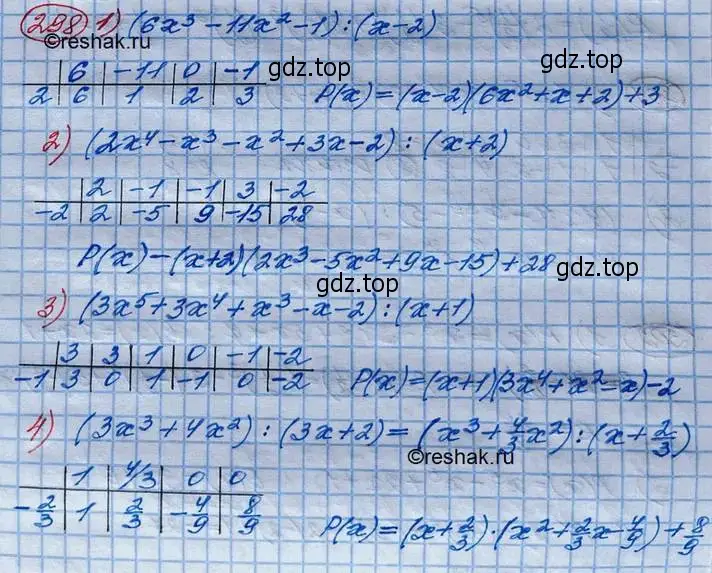 298 1) (6x³ - 11x² - 1) : (x - 2)
©reshak.ru
gdz.top gdz.top
6 | -11 | 0 | -1
2 | 6 | 1 | 2 | 3 P(x) = (x-2)(6x²+x+2)+3
2) (2x⁴ - x³ - x² + 3x - 2) : (x+2)
2 | -1 | -1 | 3 | -2
-2 | 2 | -5 | 9 | -15 | 28
P(x) - (x+2)(2x³ - 5x² + 9x - 15) + 28
gdz.top gdz.top
3) (3x⁵ + 3x⁴ + x³ - x - 2) : (x+1)
3 | 3 | 1 | 0 | -1 | -2
-1 | 3 | 0 | 1 | -1 | 0 | -2 P(x) = (x+1)(3x⁴ + x² - x) - 2
4) (3x³ + 4x²) : (3x+2) = (x³ + 4/3 x²) : (x + 2/3)
©reshak.ru
gdz.top gdz.top
1 | 4/3 | 0 | 0
-2/3 | 1 | 2/3 | -4/9 | 8/9 P(x) = (x + 2/3) · (x² + 2/3 x - 4/9) + 8/9